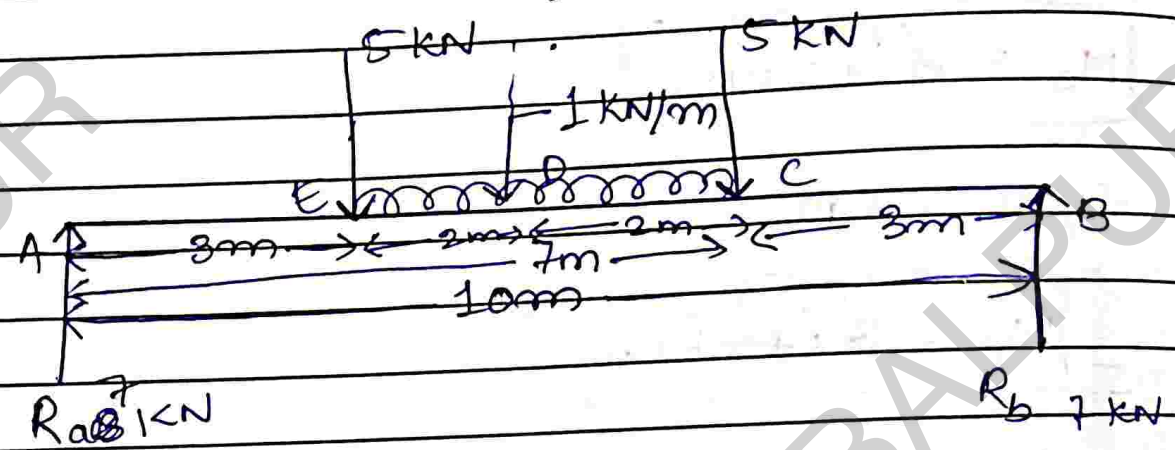 5 KN 5 KN
1 KN/m
E D C
A 3m 2m 2m 3m B
7m
10m
Ra 7 KN Rb 7 KN
BALPUR
R